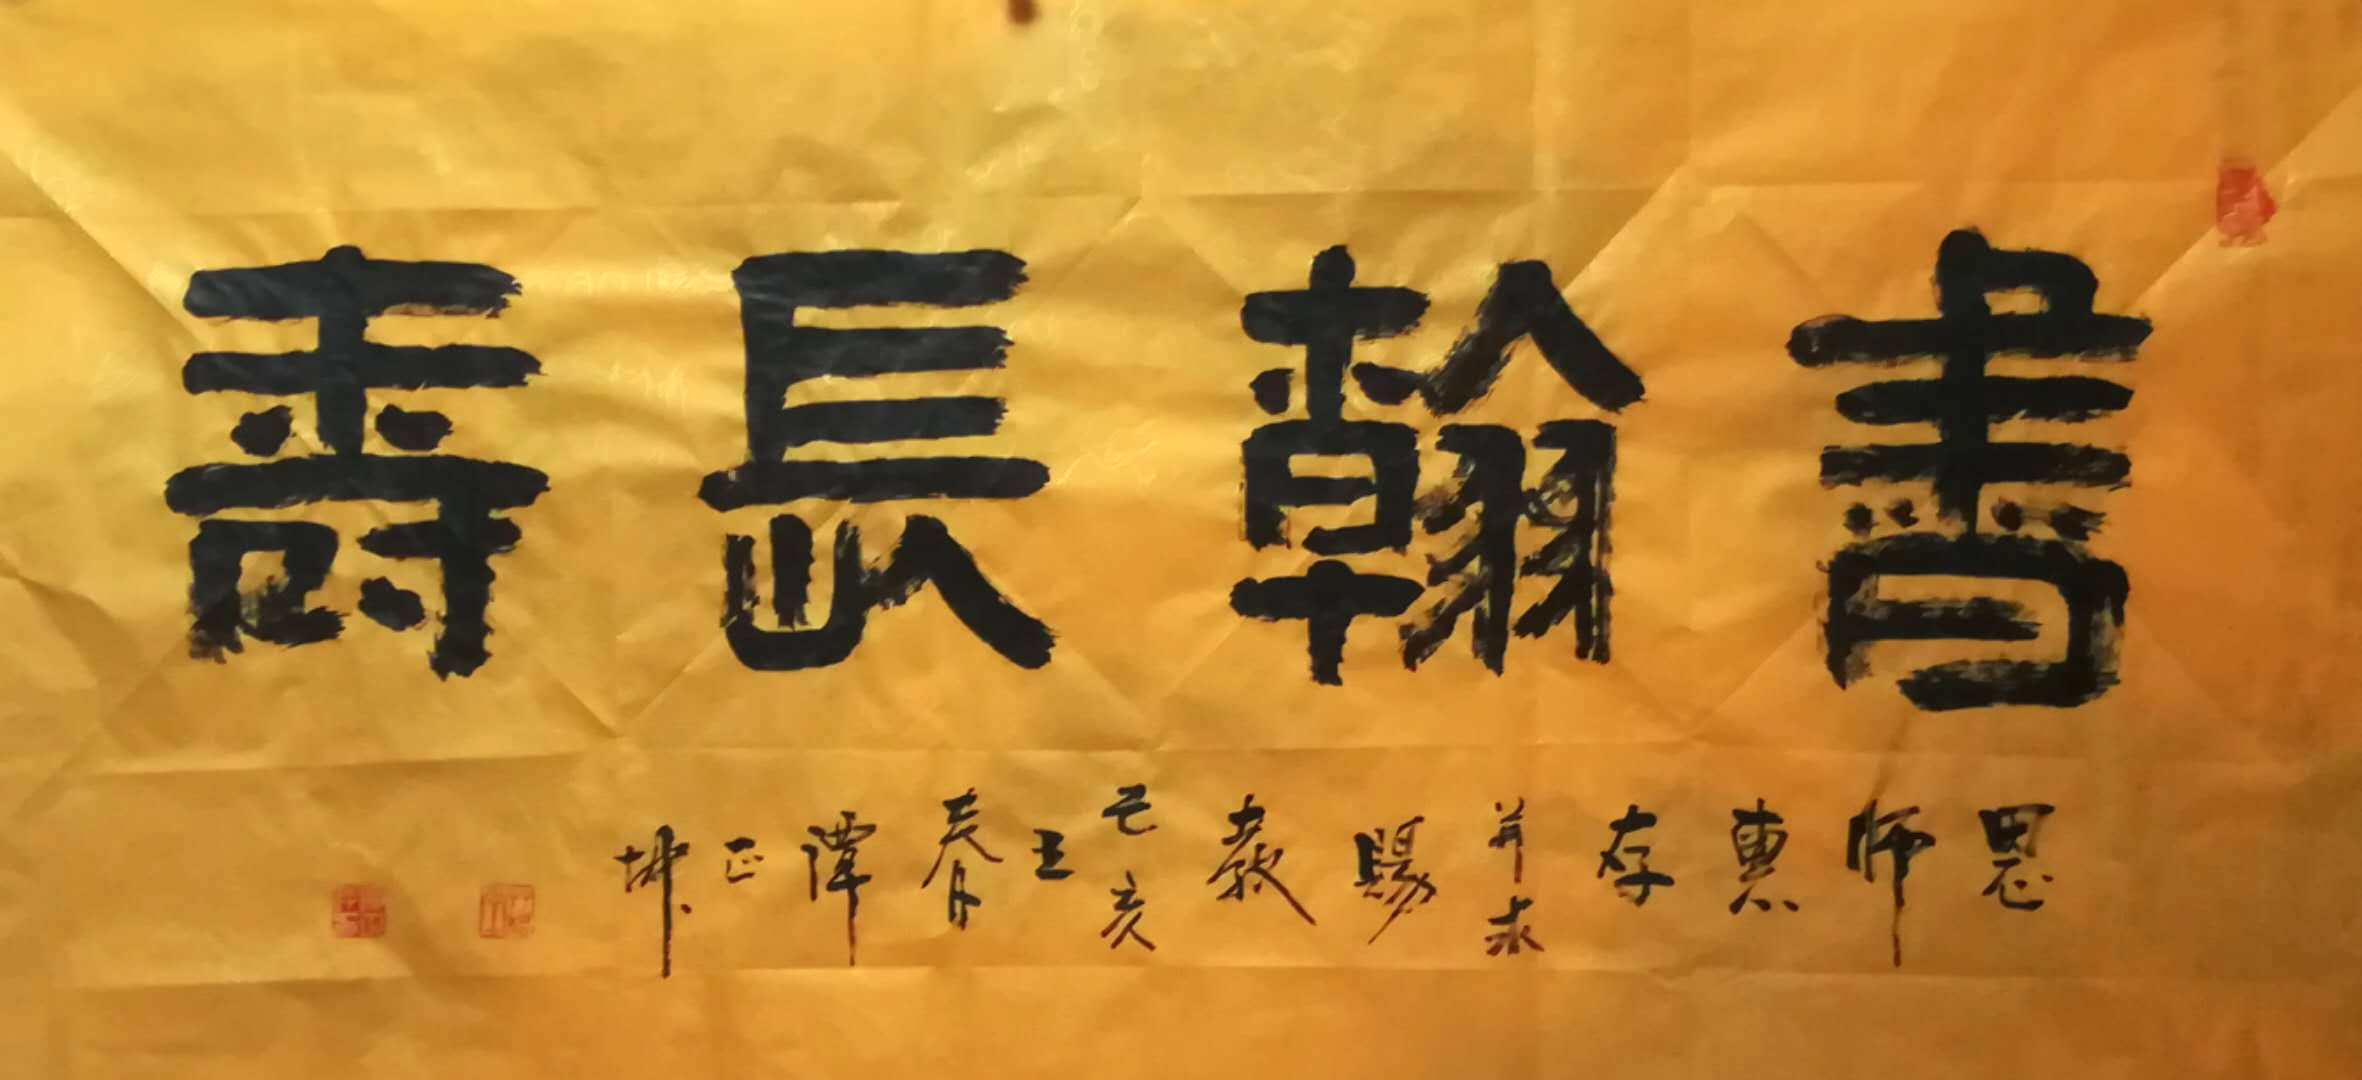 書翰長壽
恩师惠存并求賜教己亥王春譚正坤